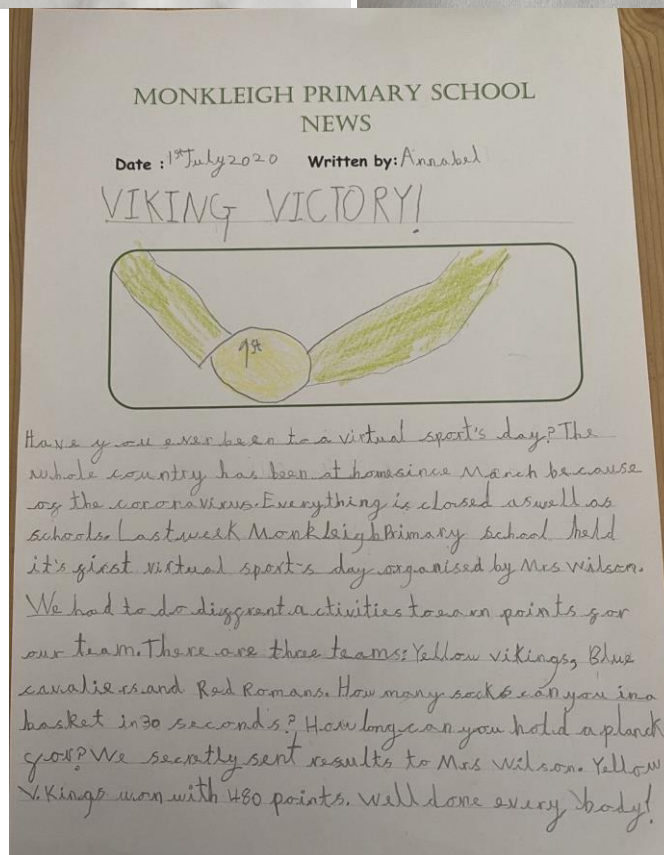 MONKLEIGH PRIMARY SCHOOL
NEWS
Date : 1st July 2020 Written by: Annabel
VIKING VICTORY!
1st
Have you ever been to a virtual sport's day? The
whole country has been at home since March because
of the coronavirus. Everything is closed aswell as
schools. Last week Monkleigh Primary school held
it's first virtual sport's day organised by Mrs Wilson.
We had to do diffrent activities to earn points for
our team. There are three teams: Yellow vikings, Blue
cavaliers and Red Romans. How many socks can you in a
basket in 30 seconds? How long can you hold a planck
for? We secretly sent results to Mrs Wilson. Yellow
Vikings won with 480 points. Well done every body!